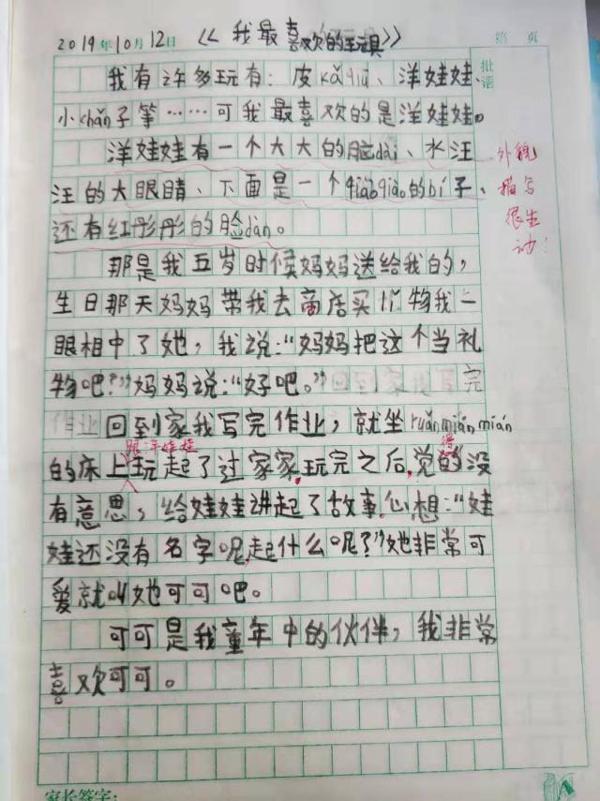 2019年10月12日 《我最喜欢的玩具》
页
批语
我有许多玩有：皮kǎqiú、洋娃娃、
小chǎn子等……可我最喜欢的是洋娃娃。
洋娃娃有一个大大的脑dài、水汪
汪的大眼睛、下面是一个qiàoqiào的bí子、
还有红彤彤的脸dàn。
外貌
描写
很生
动！
那是我五岁时候妈妈送给我的，
生日那天妈妈带我去商店买礼物我一
眼相中了她，我说：“妈妈把这个当礼
物吧？”妈妈说：“好吧。”
回到家我写完作业，就坐ruǎnmiánmián
跟洋娃娃
得
的床上玩起了过家家，玩完之后，觉的没
有意思，给娃娃讲起了故事，心想：“娃
娃还没有名字呢，起什么呢？”她非常可
爱就叫她可可吧。
可可是我童年中的伙伴，我非常
喜欢可可。
家长签字：